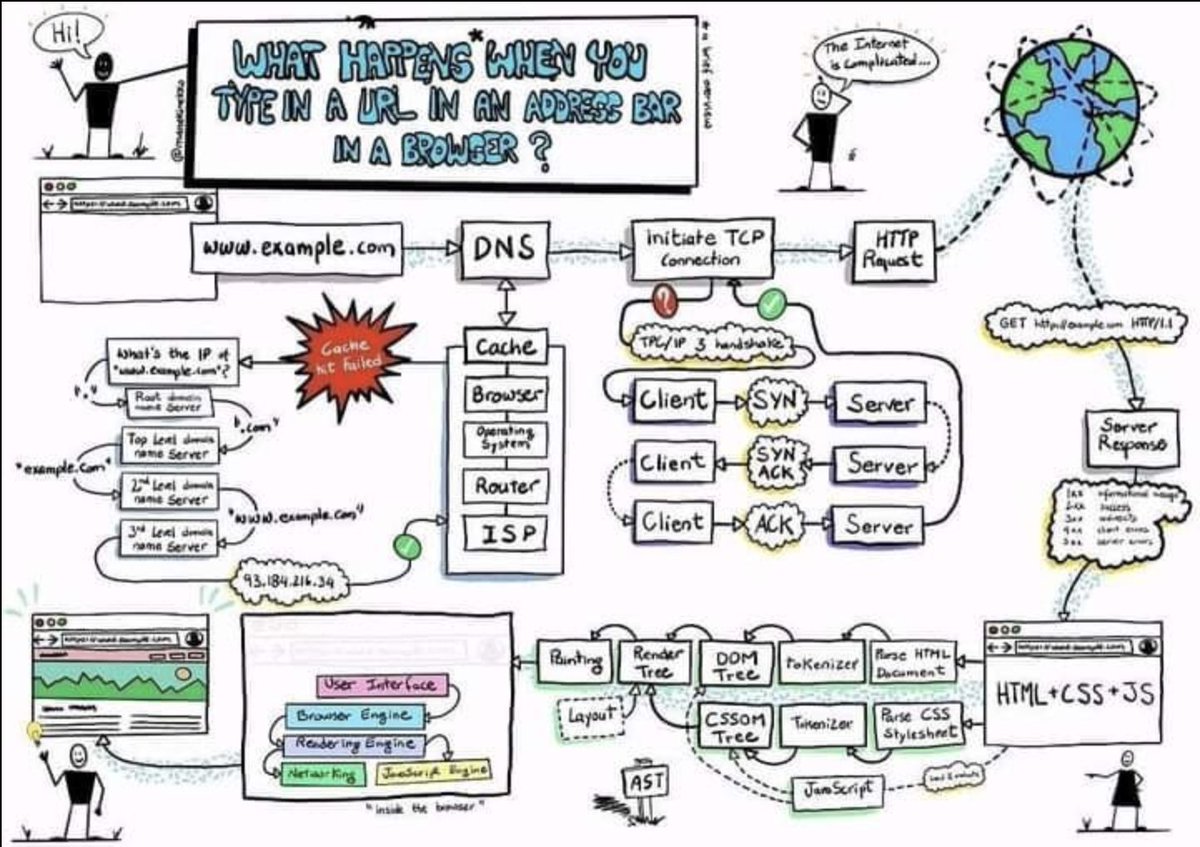 Hi!
WHAT HAPPENS* WHEN YOU
TYPE IN A URL IN AN ADDRESS BAR
IN A BROWSER?
* a brief overview
The Internet
is complicated...
www.example.com
DNS
Initiate TCP
Connection
HTTP
Request
Cache
Browser
Operating
System
Router
ISP
Cache
hit failed
What's the IP of
"www.example.com"?
"."
Root domain
name Server
".com"
Top Level domain
name Server
"example.com"
2nd Level domain
name Server
"www.example.com"
3rd Level domain
name Server
93.184.216.34
?
TPC/IP 3 handshake
Client
SYN
Server
Client
SYN
ACK
Server
Client
ACK
Server
GET http://example.com HTTP/1.1
Server
Response
1xx informational message
2xx success
3xx redirects
4xx client errors
5xx server errors
HTML+CSS+JS
Parse HTML
Document
Tokenizer
DOM
Tree
Render
Tree
Painting
Layout
Parse CSS
Stylesheet
Tokenizer
CSSOM
Tree
JavaScript
AST
User Interface
Browser Engine
Rendering Engine
Networking
JavaScript Engine
"inside the browser"